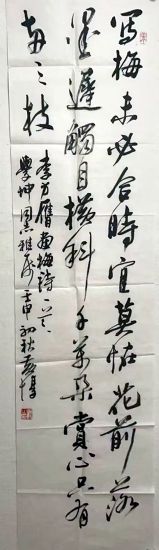 寫梅未必合時宜莫怪花前落
墨遲觸目橫斜千萬朵賞心只有
兩三枝
李方膺畫梅詩一首
學坤同志雅屬 壬申初秋